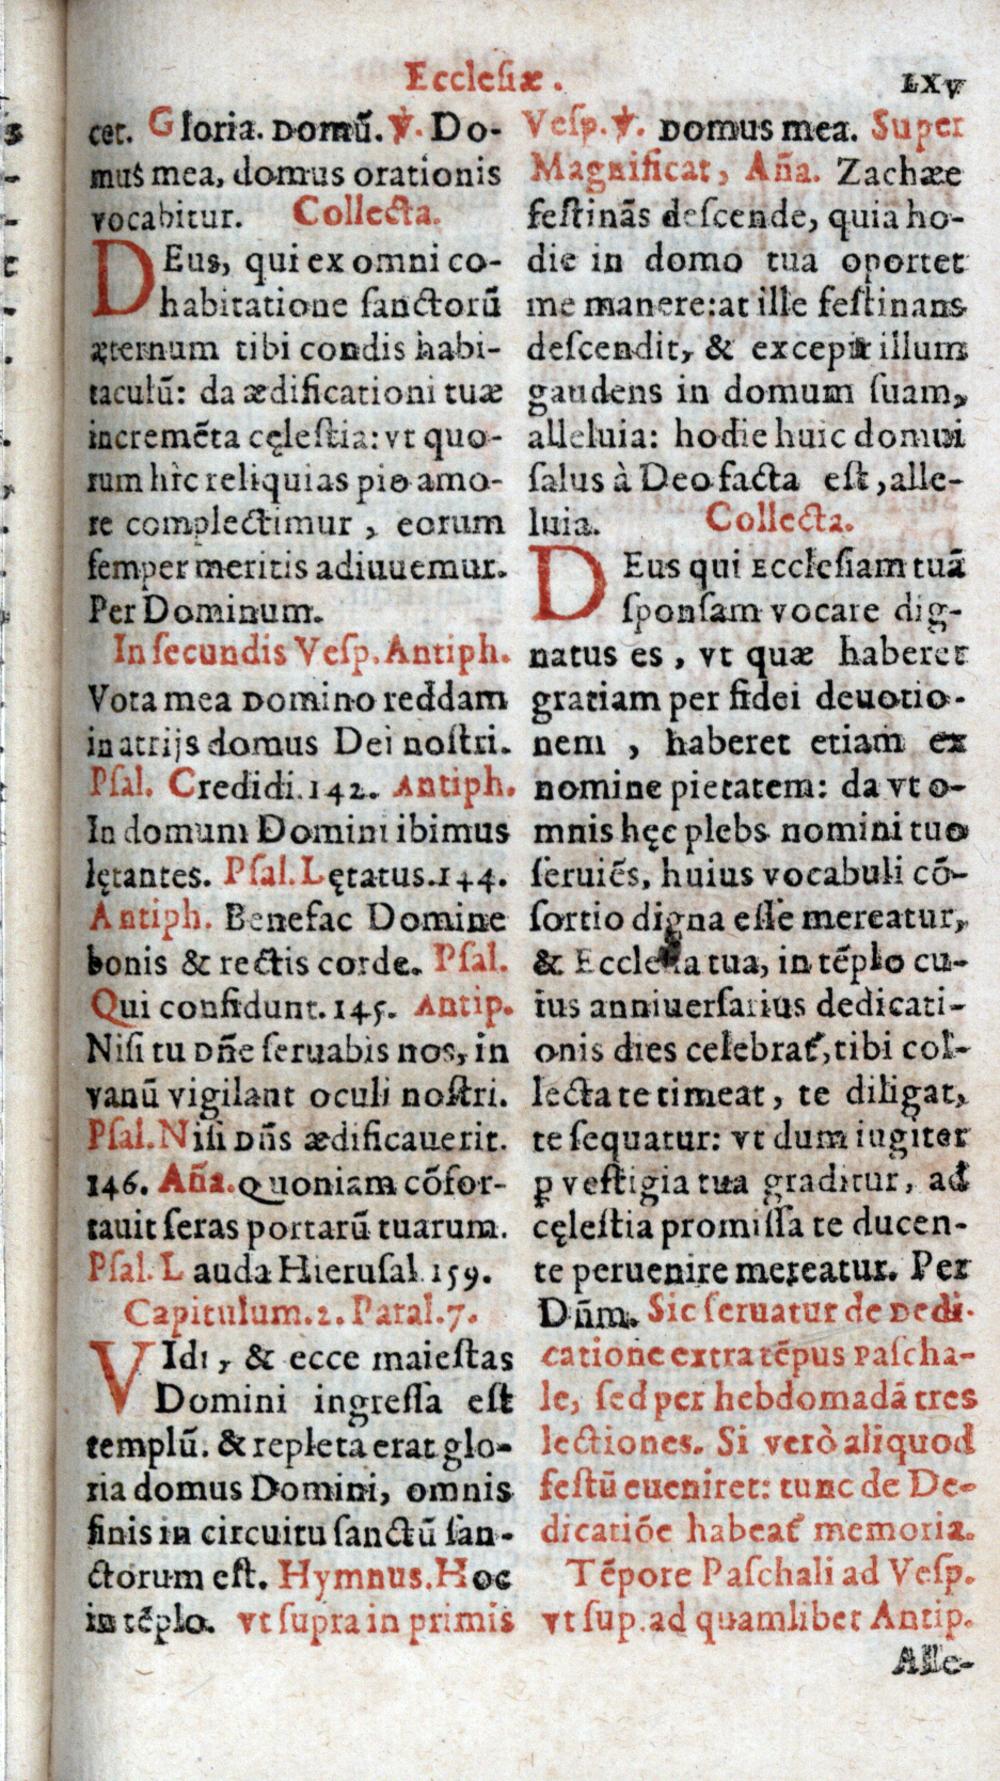 Ecclesiæ.
LXV
cet. Gloria. Domū. ℣. Do-
mus mea, domus orationis
vocabitur. Collecta.
DEus, qui ex omni co-
habitatione sanctorū
æternum tibi condis habi-
taculū: da ædificationi tuæ
incremēta cęlestia: vt quo-
rum hîc reliquias pio amo-
re complectimur, eorum
semper meritis adiuuemur.
Per Dominum.
In secundis Vesp. Antiph.
Vota mea Domino reddam
in atrijs domus Dei nostri.
Psal. Credidi. 142. Antiph.
In domum Domini ibimus
lętantes. Psal. Lętatus. 144.
Antiph. Benefac Domine
bonis & rectis corde. Psal.
Qui confidunt. 145. Antip.
Nisi tu Dñe seruabis nos, in
vanū vigilant oculi nostri.
Psal. Nisi Dñs ædificauerit.
146. Aña. Quoniam cōfor-
tauit seras portarū tuarum.
Psal. Lauda Hierusal. 159.
Capitulum. 2. Paral. 7.
VIdi, & ecce maiestas
Domini ingressa est
templū. & repleta erat glo-
ria domus Domini, omnis
finis in circuitu sanctū san-
ctorum est. Hymnus. Hoc
in tēplo. vt supra in primis
Vesp. ℣. Domus mea. Super
Magnificat, Aña. Zachæe
festinās descende, quia ho-
die in domo tua oportet
me manere: at ille festinans
descendit, & excepit illum
gaudens in domum suam,
alleluia: hodie huic domui
salus à Deo facta est, alle-
luia. Collecta.
DEus qui Ecclesiam tuā
sponsam vocare dig-
natus es, vt quæ haberet
gratiam per fidei deuotio-
nem, haberet etiam ex
nomine pietatem: da vt o-
mnis hęc plebs nomini tuo
seruiēs, huius vocabuli cō-
sortio digna esse mereatur,
& Ecclesia tua, in tēplo cu-
ius anniuersarius dedicati-
onis dies celebrat̃, tibi col-
lecta te timeat, te diligat,
te sequatur: vt dum iugiter
ꝑ vestigia tua graditur, ad
cęlestia promissa te ducen-
te peruenire mereatur. Per
Dñm. Sic seruatur de Dedi-
catione extra tēpus Pascha-
le, sed per hebdomadā tres
lectiones. Si verò aliquod
festū eueniret: tunc de De-
dicatiōe habeat̃ memoria.
Tēpore Paschali ad Vesp.
vt sup. ad quamlibet Antip.
Alle-